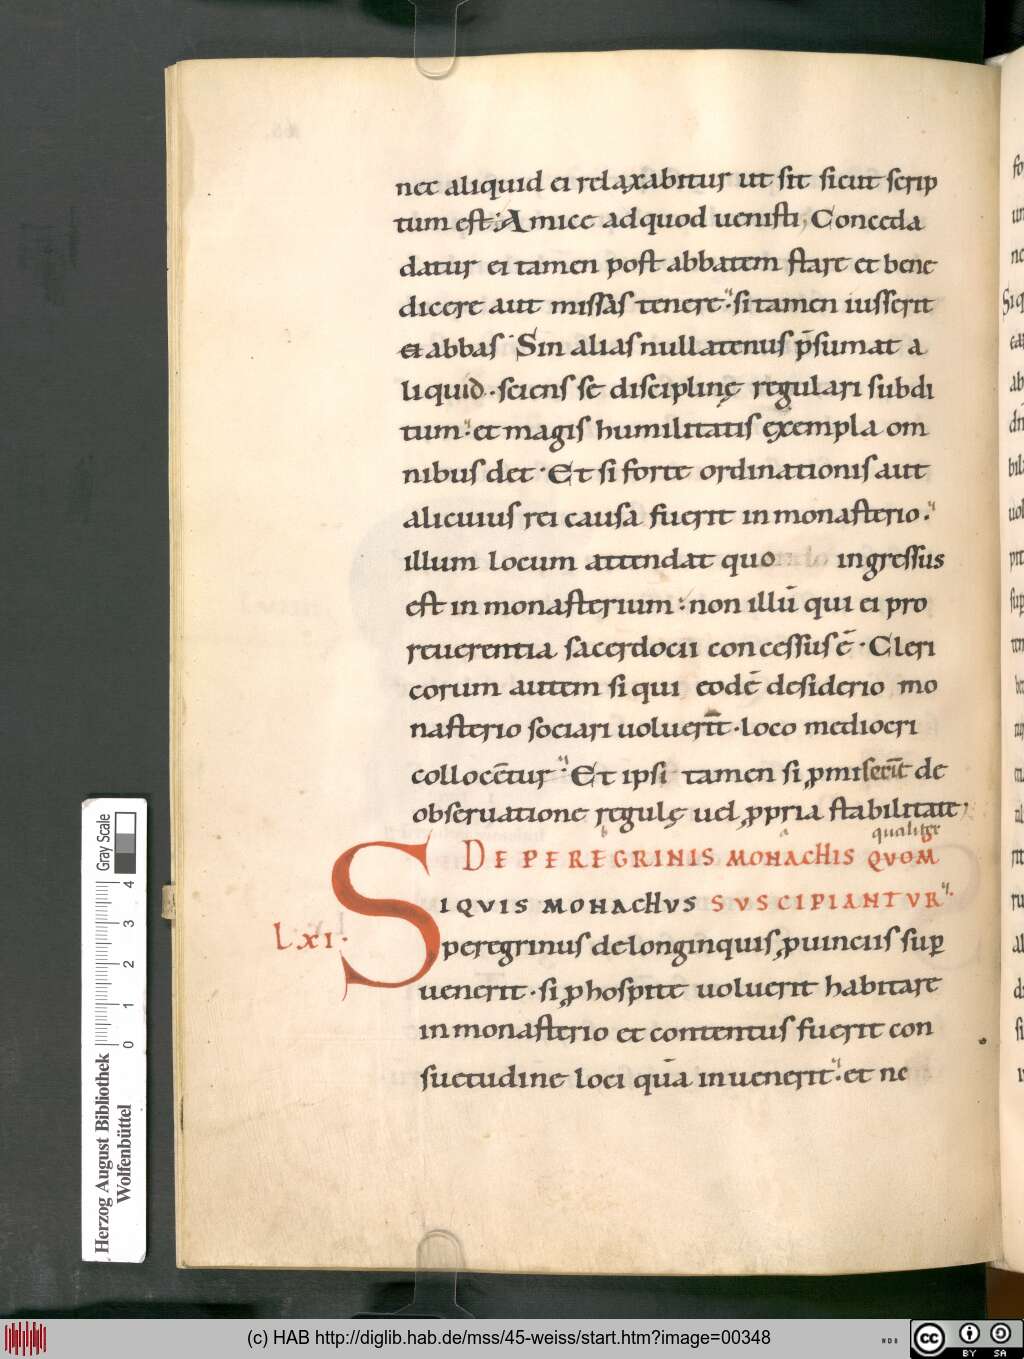 nec aliquid ei relaxabitur ut sit sicut scrip
tum est; Amice ad quod uenisti, Conceda
datur ei tamen post abbatem stare et bene
dicere aut missas tenere; si tamen iusserit
ei abbas Sin alias nullatenus p̄sumat a
liquid · sciens se disciplinę regulari subdi
tum; et magis humilitatis exempla om
nibus det · Et si forte ordinationis aut
alicuius rei causa fuerit in monasterio;
illum locum attendat quo ingressus
est in monasterium: non illū qui ei pro
reuerentia sacerdocii concessus ē · Cleri
corum autem si qui eodē desiderio mo
nasterio sociari uoluerīt · loco mediocri
collocētur; Et ipsi tamen si ꝓmiserīt de
obseruatione regulę uel ꝓpria stabilitate;
qualiter
DE PEREGRINIS MONACHIS QVOM
SIQVIS MONACHVS SVSCIPIANTVR;
Lxi·
peregrinus de longinquis ꝓuinciis suꝑ
uenerit · si ꝓ hospite uoluerit habitare
in monasterio et contentus fuerit con
suetudine loci quā inuenerit; et ne
Gray Scale
4
3
2
1
0
Herzog August Bibliothek
Wolfenbüttel
(c) HAB http://diglib.hab.de/mss/45-weiss/start.htm?image=00348
WDB
cc
BY SA